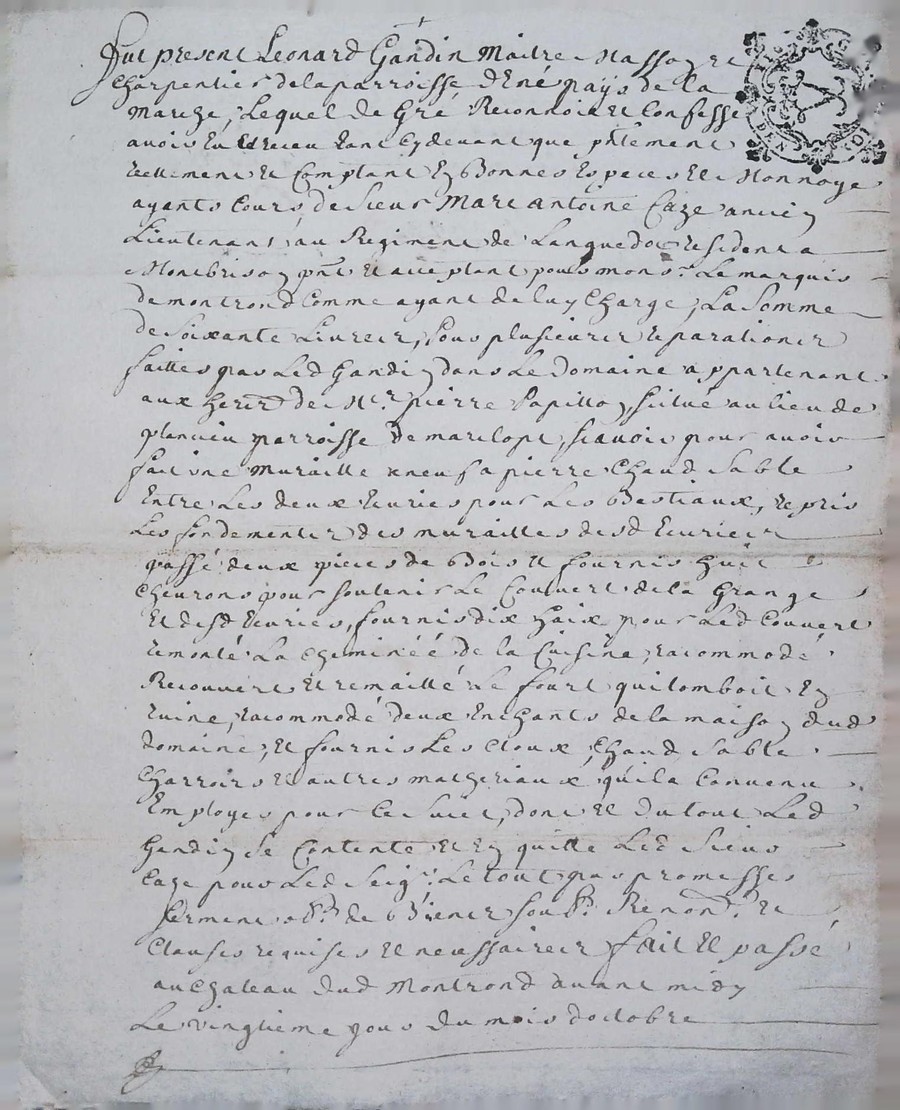 Fut present Leonard Gandin Maitre Masson et
Charpentier de la parroisse d'Ené pays de la
Marche, Lequel de Gré Reconnoit et Confesse
avoir Eu et receu tant cy devant que pñtement
reellement et Comptant En Bonnes Especes et Monnoye
ayants Cours, de Sieur Marc Antoine Caze ancien
Lieutenant au Regiment de Languedoc resident a
Montbrison pñt et acceptant pour mons.r Le marquis
de montrond Comme ayant de luy Charge, La Somme
de Soixante Livres, pour plusieurs reparations
faittes par Led Gandin dans Le Domaine appartenant
aux herit de M.r pierre Papillon, situé au lieu de
plancieu parroisse de marclopt, scavoir pour avoir
fait une muraille a neuf a pierre Chaud Sable
Entre Les deux Ecuries pour Les Bestiaux, repris
Les fondements des murailles desd Ecuries
passé deux pieces de Bois et fournis huit
chevrons pour soutenir Le Couvert de la Grange
Et desd Ecuries, fournis dix haix pour Led Couvert
remonté La Cheminéé de la Cuisine, racommodé
Recouvert Et remaillé Le fourt qui tomboit En
ruine, racommodé deux Enchants de la maison dud
domaine, Et fournis Les Cloux, Chaud Sable
Charrois et autres matheriaux qu'il a Convenu
Employer pour Ce Sujet, dont Et du tout Led
Gandin Se Contente Et En quitte Led Sieur
Caze pour Led Seig.r Le tout par promesses
serment de Biens Renon.on Et
Clauses requises Et necessaires fait Et passé
au Chateau dud Montrond avant midy
Le vingtieme jour du mois d'octobre